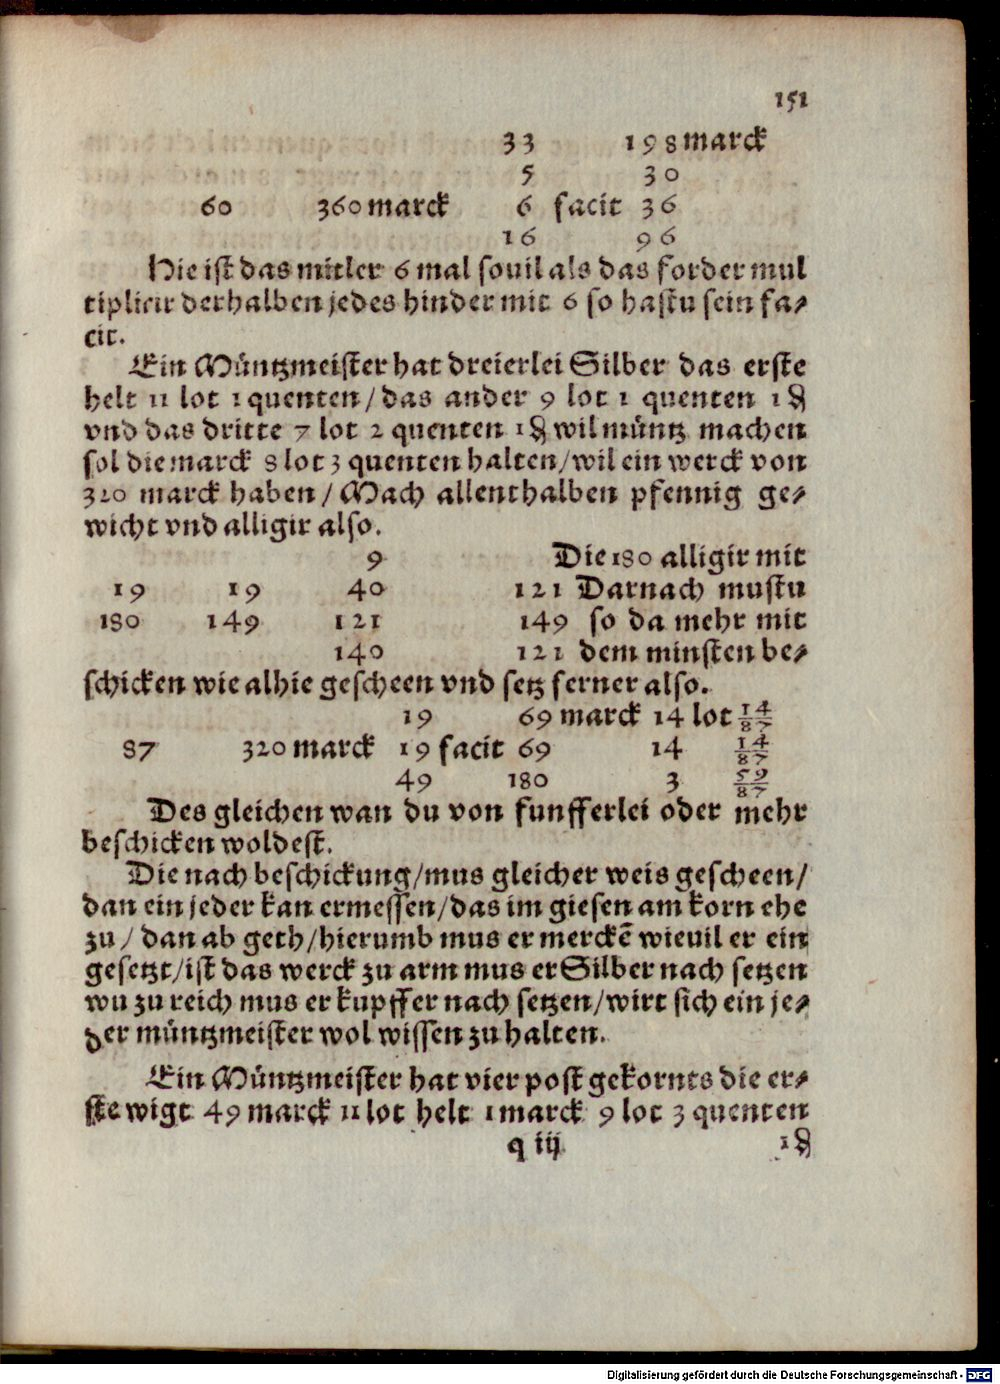 151
33 198 marck
5 30
60 360 marck 6 facit 36
16 96
Hie ist das mitler 6 mal souil als das forder mul
tiplicir derhalben jedes hinder mit 6 so hastu sein fa⸗
cit.
Ein Müntzmeister hat dreierlei Silber das erste
helt 11 lot 1 quenten/das ander 9 lot 1 quenten 1 ₰
vnd das dritte 7 lot 2 quenten 1 ₰ wil müntz machen
sol die marck 8 lot 3 quenten halten/wil ein werck von
320 marck haben/Mach allenthalben pfennig ge⸗
wicht vnd alligir also.
9 Die 180 alligir mit
19 19 40 121 Darnach mustu
180 149 121 149 so da mehr mit
140 121 dem minsten be⸗
schicken wie alhie gescheen vnd setz ferner also.
19 69 marck 14 lot 14/87
87 320 marck 19 facit 69 14 14/87
49 180 3 59/87
Des gleichen wan du von funfferlei oder mehr
beschicken woldest.
Die nach beschickung/mus gleicher weis gescheen/
dan ein jeder kan ermessen/das im giesen am korn ehe
zu/dan ab geth/hierumb mus er merckē wieuil er ein
gesetzt/ist das werck zu arm mus er Silber nach setzen
wu zu reich mus er kupffer nach setzen/wirt sich ein je⸗
der müntzmeister wol wissen zu halten.
Ein Müntzmeister hat vier post gekornts die er⸗
ste wigt 49 marck 11 lot helt 1 marck 9 lot 3 quenten
q iij 1 ₰
Digitalisierung gefördert durch die Deutsche Forschungsgemeinschaft - DFG